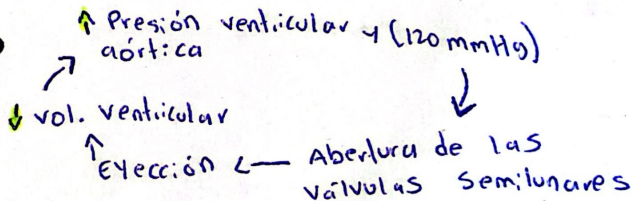 ↑ Presión ventricular y (120 mmHg)
aórtica
↓ vol. ventricular
Eyección ← Abertura de las
válvulas semilunares